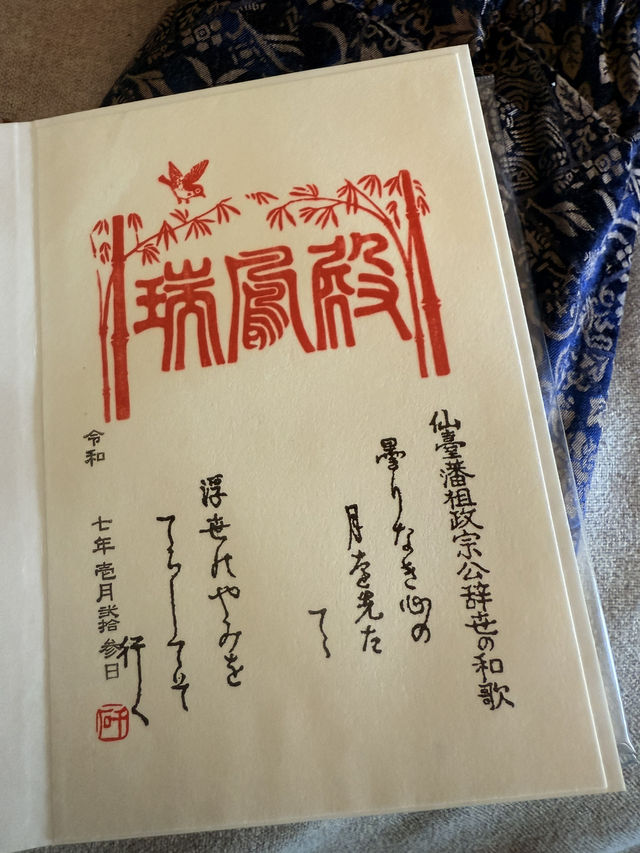 瑞鳳殿
仙臺藩祖政宗公辞世の和歌
曇りなき心の
月を先た
てゝ
浮世のやみを
てらしてそ
行く
令和
七年壱月弐拾参日